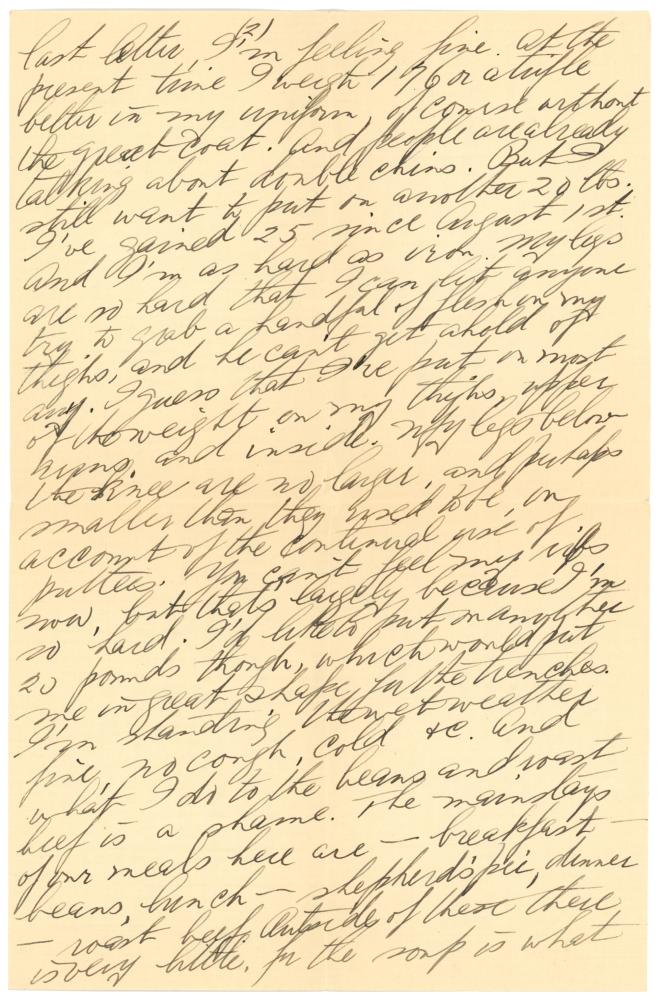 (2)
last letter, I'm feeling fine. At the
present time I weigh 176 or a trifle
better in my uniform, of course without
the great coat. And people are already
talking about double chins. But I
still want to put on another 20 lbs.
I've gained 25 since August 1st.
And I'm as hard as iron. My legs
are so hard that I can let anyone
try to grab a handful of flesh on my
thighs, and he can't get ahold of
any. I guess that I've put on most
of the weight on my thighs, upper
arms, and inside. My legs below
the knee are no larger, and perhaps
smaller than they used to be, on
account of the continual use of
puttees. You can't feel my ribs
now, but that's largely because I'm
so hard. I'd like to put on another
20 pounds though, which would put
me in great shape for the trenches.
I'm standing the wet weather
fine, no cough, cold &c. And
what I do to the beans and roast
beef is a shame. The mainstays
of our meals here are — breakfast —
beans, lunch — shepherd's pie, dinner
— roast beef. Outside of these there
is very little. In the soup is what